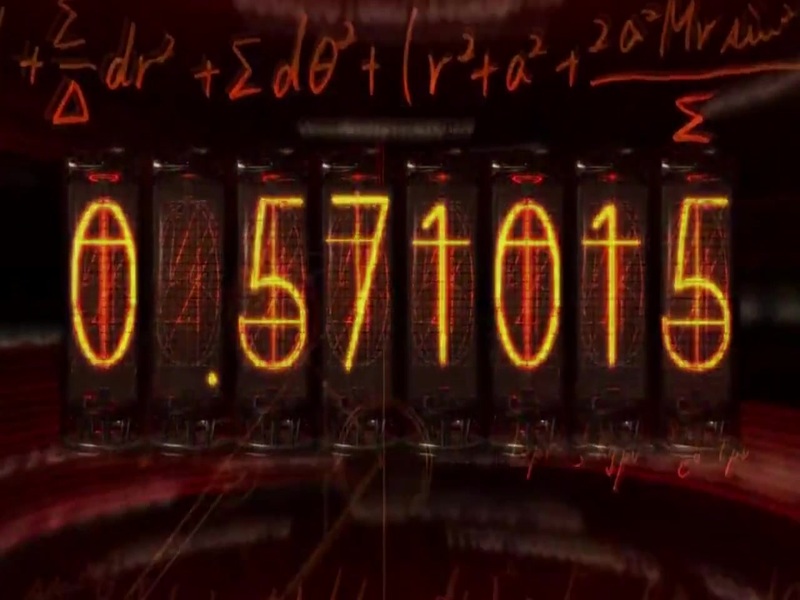 + Σ/Δ dr² + Σdθ² + (r² + a² + 2a²Mr sin²/Σ
0.571015